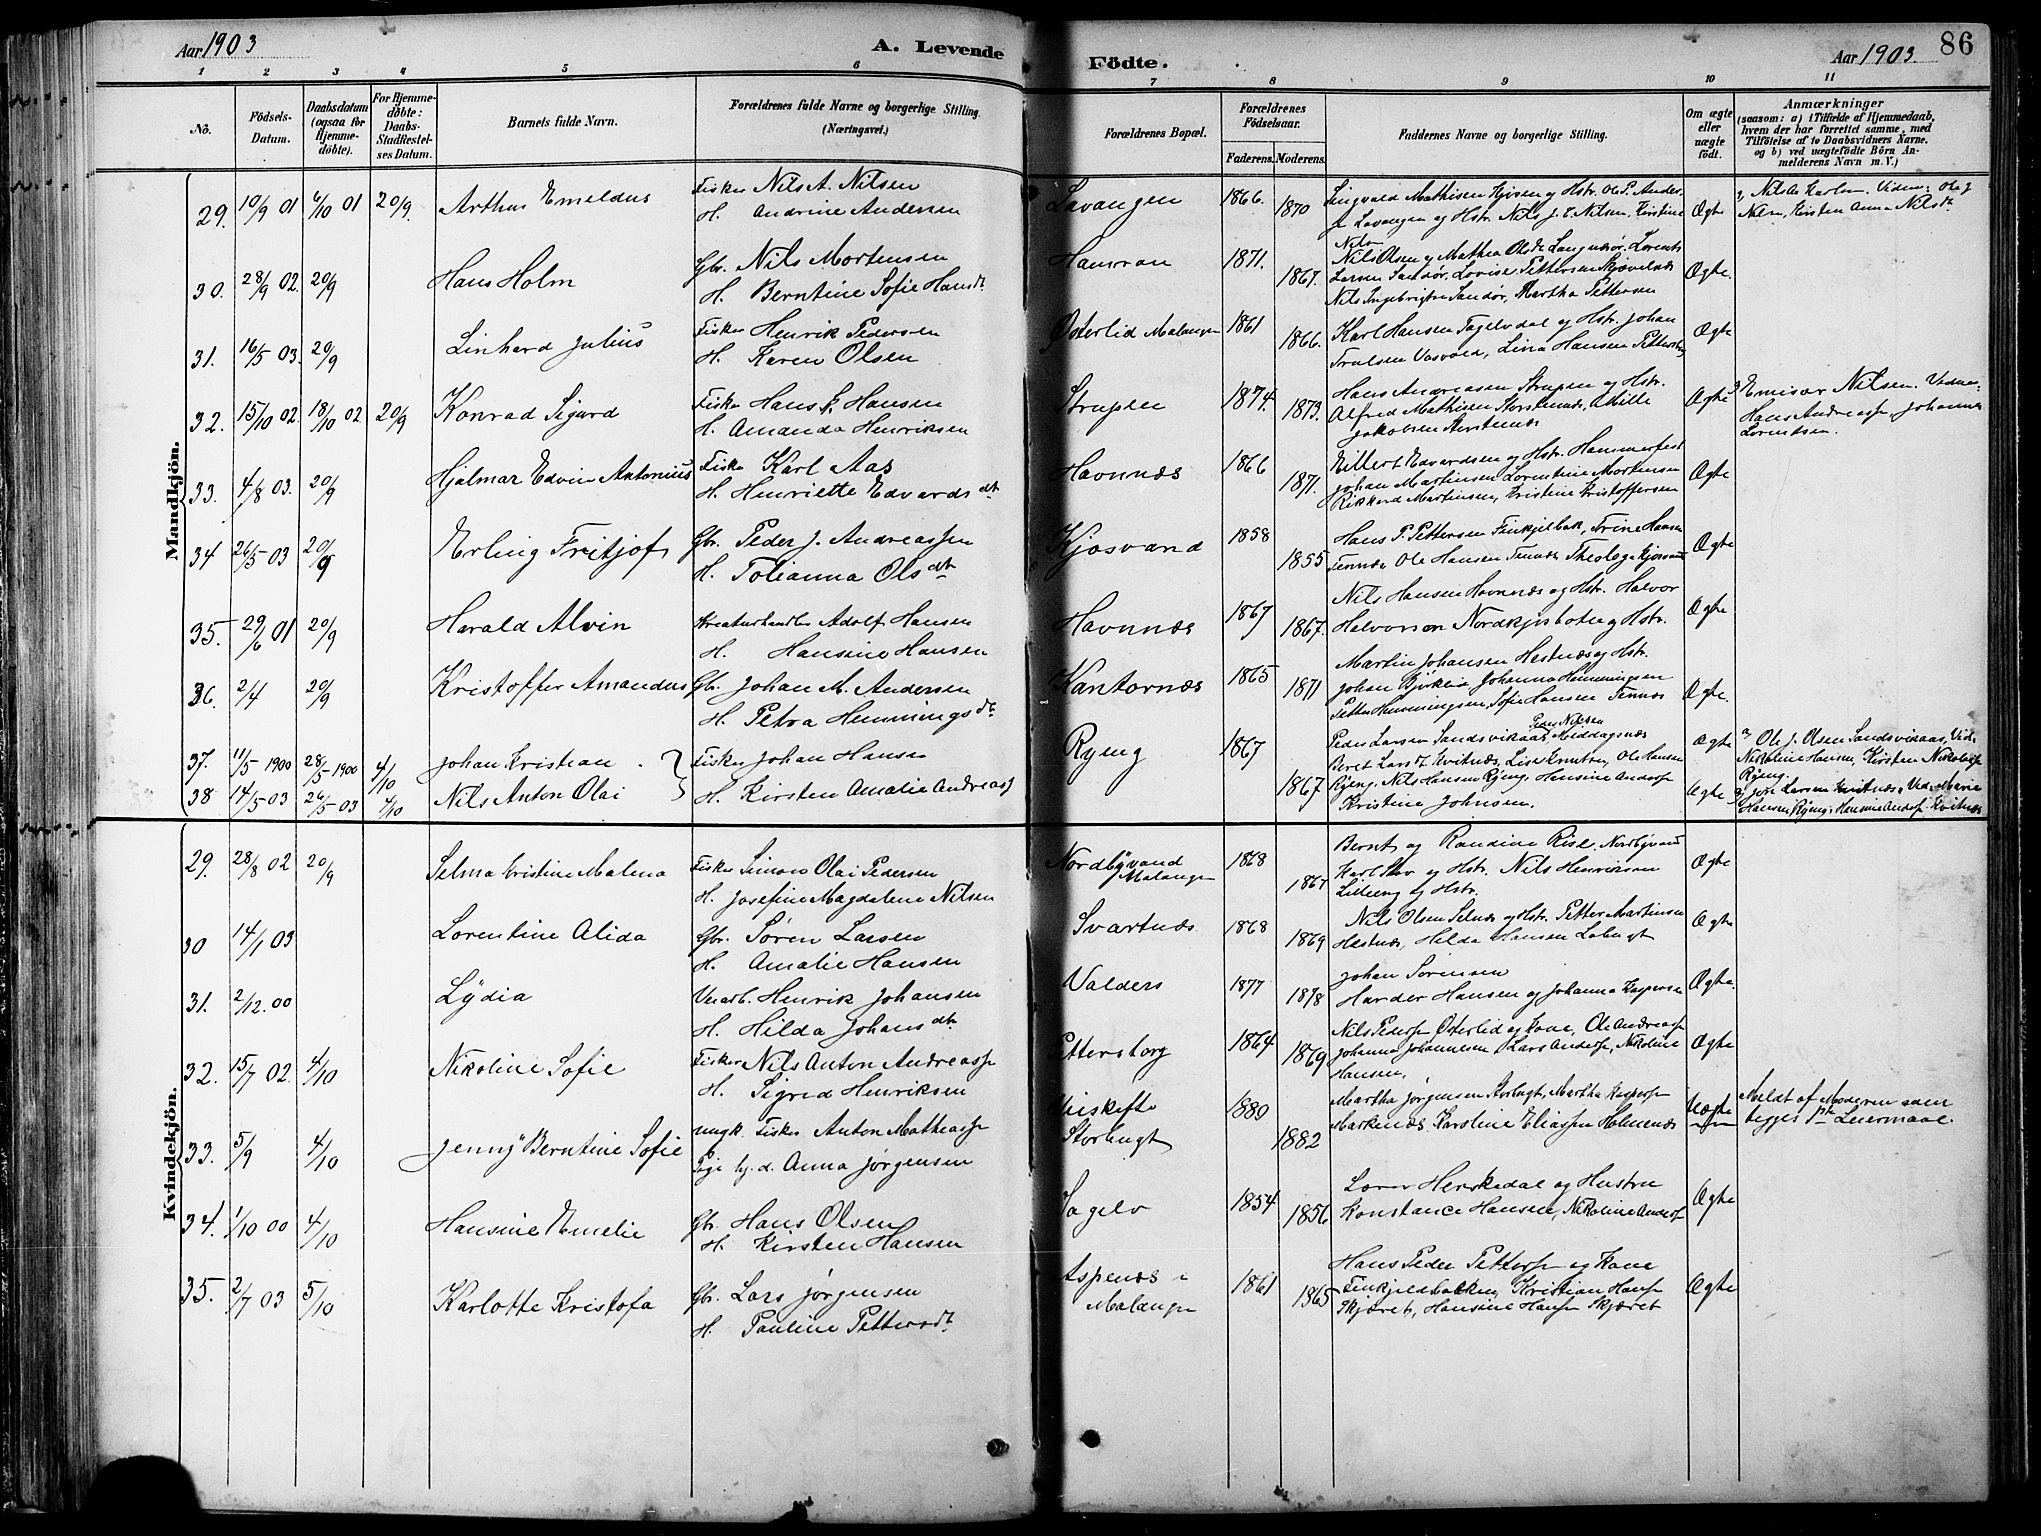 Aar 1903
A. Levende
Födte.
Aar 1903.
86
1 2 3 4 5 6 7 8 9 10 11
No.
Födsels-
Datum.
Daabsdatum
(ogsaa for
Hjemme-
döbte).
For Hjemme-
döbte:
Daabs-
Stadfæstel-
ses Datum.
Barnets fulde Navn.
Forældrenes fulde Navne og borgerlige Stilling.
(Næringsvei.)
Forældrenes Bopæl.
Forældrenes
Födselsaar.
Faderens. Moderens.
Faddernes Navne og borgerlige Stilling.
Om ægte
eller
uægte
født.
Anmærkninger
(saasom: a) i Tilfælde af Hjemmedaab,
hvem der har forrettet samme, med
Tilföielse af to Daabsvidners Navne.
og b) ved uægtefödte Börn An-
melderens Navn m. V.)
Mandkjön.
29. 10/9 01 6/10 01 20/9. Arthur Emeldus
Fisker Nils A. Nilsen
H. Andrine Andersen
Lavangen 1866. 1870
Singvald Mathisen Kjosen og Hstr. Ole P. Ander.
Lavangen og Hstr. Nils J. E. Nilsen, Kristine
Nils
Ægte
Nils Karlsen. Vidne: Ole J
Nilsen, Kirsten Anna Nilsdt.
30. 28/9 02. 20/9 Hans Holm
Gbr. Nils Mortensen
H. Berntine Sofie Hansdt.
1871. 1867.
Nils Olsen og Mathea Olsdt. Langnesør. Lorents
Larsen Sandør, Lovise Pettersen
Nils Ingebrigtsen Sandør, Martha Pettersen
Ægte.
31. 16/5 03. 20/9 Linhard Julius
Fisker Henrik Pedersen
H. Karen Olsen
Østerlid Malangen 1861 1866.
Karl Hansen Tagelvdal og Hstr. Johan
Trulsen Vasvold, Lina Hansen Petterstorg
Ægte
32. 15/10 02. 18/10 02 20/9 Konrad Sigurd
Fisker Hans J. Hansen
H. Amanda Henriksen
Strupen 1874. 1873.
Hans Andreasen Strupen og Hstr.
Alfred Mathisen Storstennæs, Mille
Jakobsen Storstennæs
Ægte
Emisær Nilsen. Vidne:
Hans Andreass. Johannes
Lorentsen.
33. 4/8 03. 20/9 Hjalmar Edvin Antonius
Fisker Karl Aas
H. Henriette Edvardsdt
Havnnæs 1866 1871.
Eillert Edvardsen og Hstr. Hammerfest
Johan Martinsen Lorentine Mortensen
Rikhard Martinsen, Kristine Kristoffersen
Ægte
34 26/5 03 20/9 Erling Fritjof
Gbr. Peder J. Andreassen
H. Tolianna Olsdt
Kjosvand 1858 1855
Hans P. Pettersen Finkjelbak, Trine Hansen
Tennæs Ole Hansen Tennæs Kjosvand
Ægte
35. 29/6 01 20/9 Harald Alvin
Kreaturhandler Adolf Hansen
H. Hansine Hansen
Havnnæs 1867 1867.
Nils Hansen Havnnæs og Hstr. Halvor
Halvorsen Nordkjosboten og Hstr.
Ægte
36. 2/4 20/9 Kristoffer Amandus
Gbr. Johan M. Andersen
H. Petra Hemmingsdt.
Kantornæs 1865 1871
Martin Johansen Hestnæs og Hstr.
Johan Bjørklid Johanna Hemmingsen
Petter Hemmingsen, Sofie Hansen Tennæs
Ægte.
37. 11/5 1900 28/5 1900 4/10 Johan Kristian
38 14/5 03 26/5 03 4/10 Nils Anton Olai
Fisker Johan Hansen
H. Kirsten Amalie Andreass
Ryeng 1867 1867
Peder Nilsen
Peder Larsen Sandsvikaas, Middagsnæs
Beret Larsdt. Kvitnæs, Lise Knutsen, Ole Hansen
Ryeng, Nils Hansen Ryeng, Hansine Anders
Kristine Johnsen.
Ægte
Ægte
a) Ole J. Olsen Sandsvikaas, Vid.
Nikoline Hansen, Kirsten Nikolais
Ryeng.
Larsen Kvitnæs, Vid. Marie
Hansen Ryeng, Hansine Anders. Kvitnæs
Kvindekjön.
29. 28/8 02 20/9 Selma Kristine Malena
Fisker Simon Olai Pedersen
H. Josefine Magdalene Nilsen
Nordbyvand
Malangen
1868 1867
Bernt og Randine Rise, Nordbyvand
Karl og Hstr. Nils Henriksen
Lilleeng og Hstr.
Ægte
30 14/1 03 Lorentine Alida
Gbr. Søren Larsen
H. Amalie Hansen
Svartnæs 1868 1869
Nils Olsen Selnæs og Hstr. Petter Martinsen
Hestnæs, Hilda Hansen
Ægte
31. 2/12. 00 Lydia
Henrik Johansen
H. Hilda Johansdt.
Valders 1877 1878
Johan Sørensen
Harder Hansen og Johanna Kaspersen
Ægte.
32. 15/7 02. 4/10 Nikoline Sofie
Fisker Nils Anton Andreass
H. Sigrid Henriksen
Petterstorg 1864 1869
Nils Peders. Østerlid og Kone, Ole Andreass
Johanna Johannesen, Lars Anders, Nikoline
Hansen.
Ægte
33. 5/9 4/10 Jenny Berntine Sofie
ungk. Fisker Anton Matheass
Pige Anna Jørgensen
Storbugt
1880 1882
Martha Jørgensen Storbugt, Martha Kaspers
Markenæs, Karoline Eliassen Holmenæs
Uægte
Meldt af Moderen som
begges 1ste Leiermaal.
34. 1/10 00 4/10 Hansine Emelie
Gbr. Hans Olsen
H. Kirsten Hansen
Sagelv 1854 1856
Herskedal og Hustru
Konstance Hansen, Nikoline Anders
Ægte
35. 2/7 03 5/10 Karlotte Kristofa
Gbr. Lars Jørgensen
H. Pauline Pettersdt.
Aspenæs i
Malangen
1861 1865
Hans Peder Petters. og Kone
Finkjeldbakken, Kristian Hans
Skjæret, Hansine Hans. Skjæret
Ægte